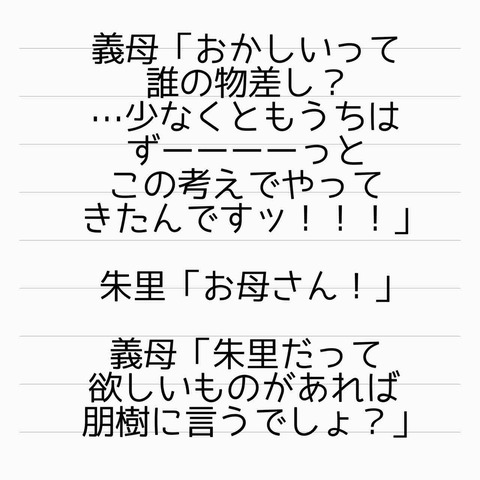 義母「おかしいって
誰の物差し？
…少なくともうちは
ずーーーーっと
この考えでやって
きたんですッ！！！」
朱里「お母さん！」
義母「朱里だって
欲しいものがあれば
朋樹に言うでしょ？」